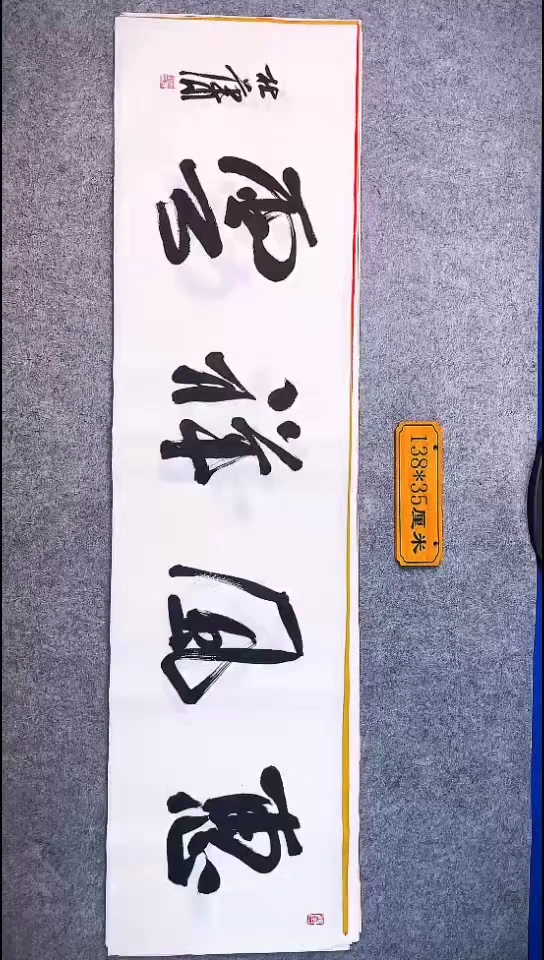 惠風祥雲
138*35厘米